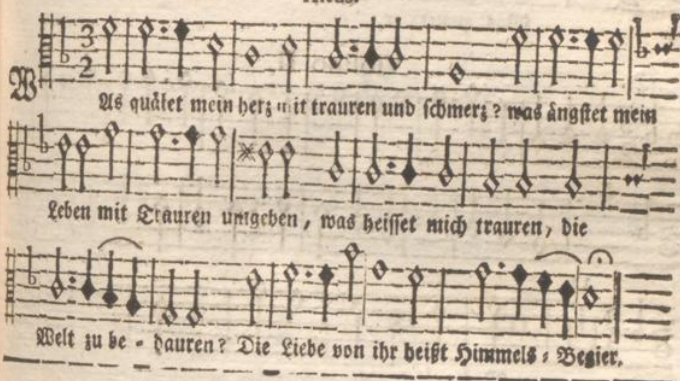 WAs quälet mein herz mit trauren und schmerz? was ängstet mein
Leben mit Trauren umgeben, was heisset mich trauren, die
Welt zu be-dauren? Die Liebe von ihr heißt Himmels-Begier.